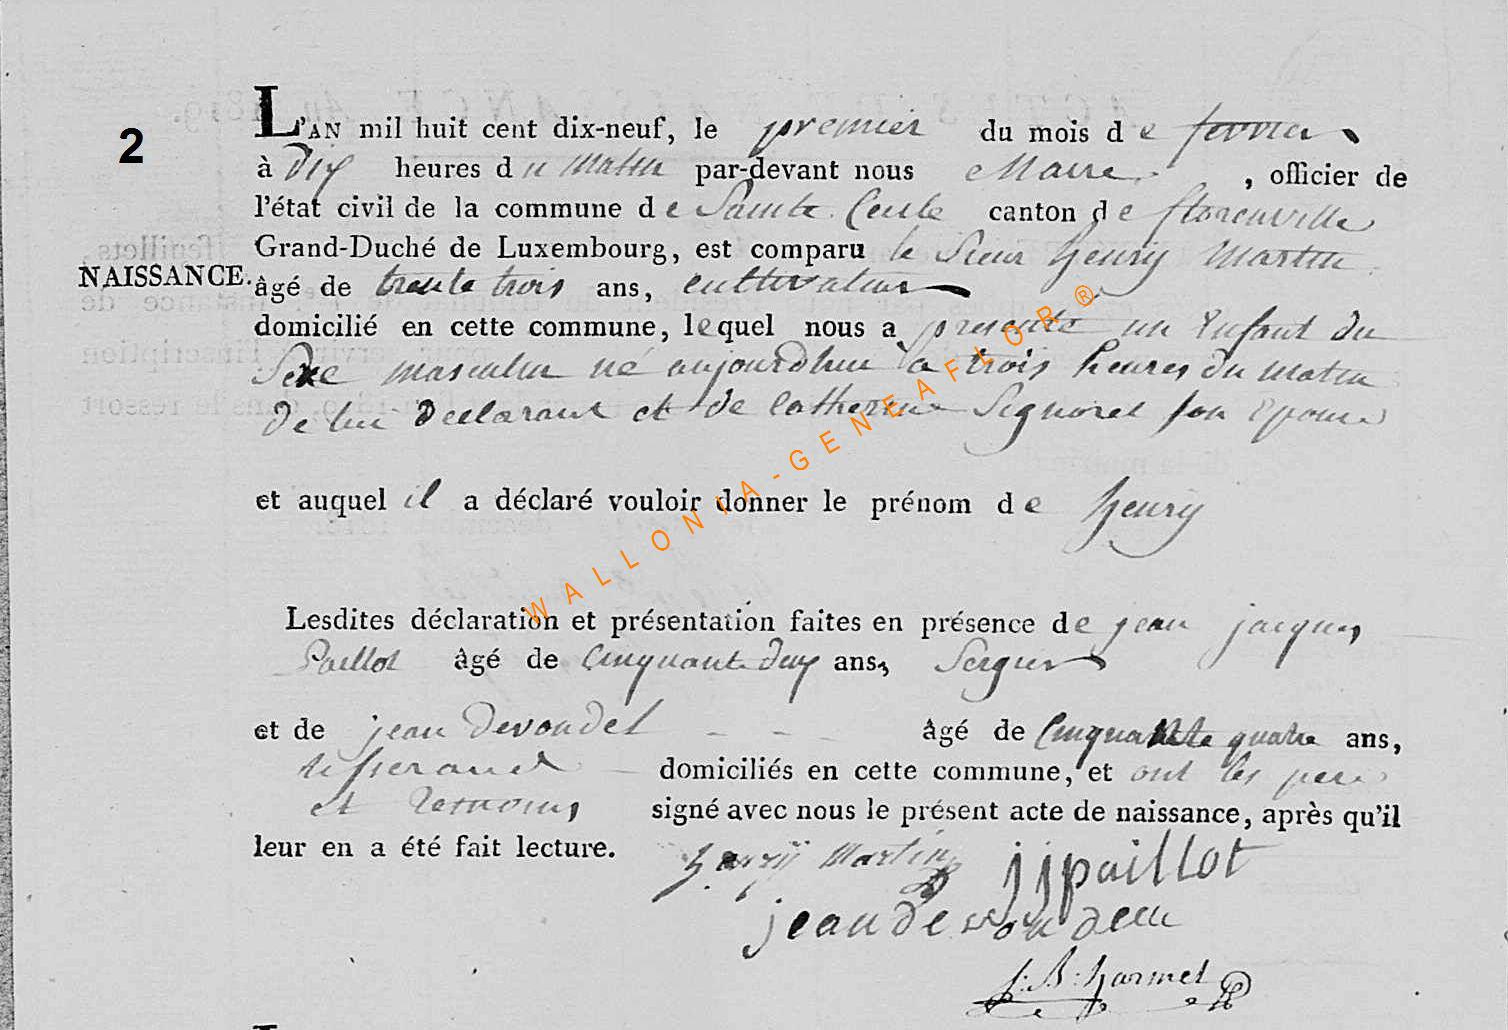 2
L'AN mil huit cent dix-neuf, le premier du mois de fevrier
à dix heures du matin par-devant nous Maire , officier de
l'état civil de la commune de Sainte Cecile canton de florenville
Grand-Duché de Luxembourg, est comparu le Sieur henry Martin
NAISSANCE.
âgé de trente trois ans, cultivateur
domicilié en cette commune, lequel nous a presenté un Enfant du
Sexe masculin né aujourdhui a trois heures du matin
de lui declarant et de Catherine Signoret son Epouse
et auquel il a déclaré vouloir donner le prénom de henry
Lesdites déclaration et présentation faites en présence de jean jacques
Paillot âgé de Cinquante deux ans, Sergier
et de jean devondel - - - âgé de Cinquante quatre ans,
tisserand domiciliés en cette commune, et ont les pere
et temoins signé avec nous le présent acte de naissance, après qu'il
leur en a été fait lecture.
henryÿ Martin jjpaillot
jean de von
J: B: harmel
WALLONIA-GENEAFLOR®